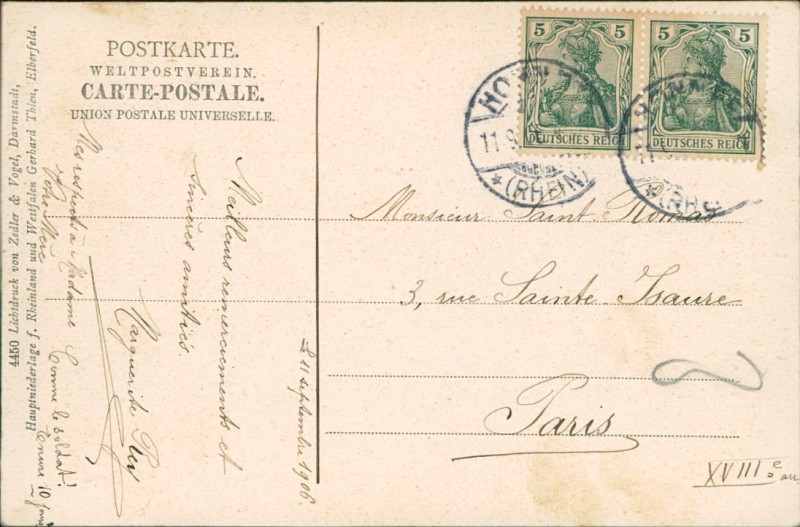 POSTKARTE.
WELTPOSTVEREIN.
CARTE-POSTALE.
UNION POSTALE UNIVERSELLE.
4450 Lichtdruck von Zedler & Vogel, Darmstadt,
Hauptniederlage f. Rheinland und Westfalen Gerhard Thien, Elberfeld.
5
5
DEUTSCHES REICH
DEUTSCHES REICH
HONNEF
11.9.
* (RHEIN)
HONNEF
Monsieur Saint-Romas
3, rue Sainte-Isaure
Paris
XVIIIe
Meilleurs remerciements et
sincères amitiés.
Marguerite
Le 11 septembre 1906.
Mes respects à Madame
Votre Mère
Comme le soldat!
10